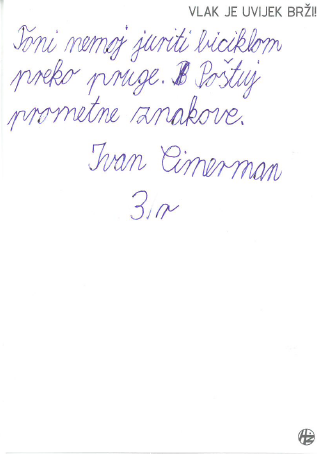 VLAK JE UVIJEK BRŽI!
Toni nemoj juriti biciklom
preko pruge. Poštuj
prometne znakove.
Ivan Cimerman
3. r
HŽ